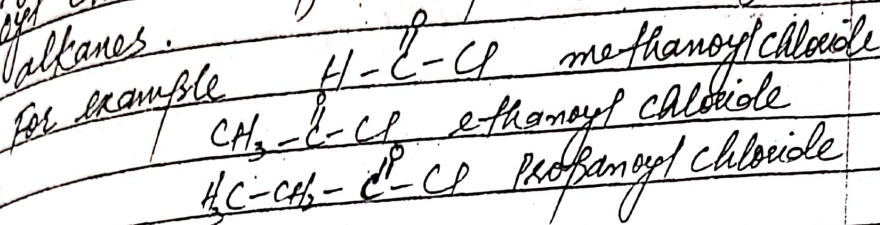 alkanes.
For example H-C-Cl methanoyl chloride
O
CH3-C-Cl ethanoyl chloride
O
H3C-CH2-C-Cl Propanoyl chloride
O